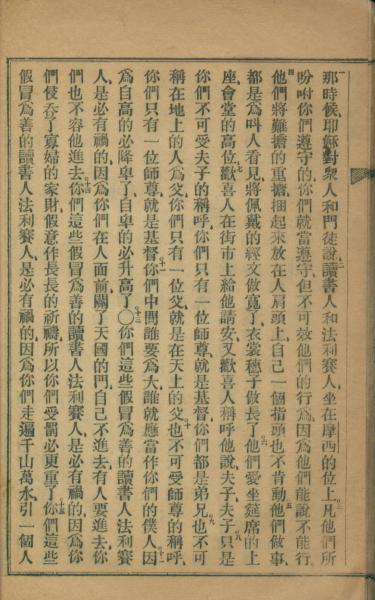 那時候耶穌對衆人和門徒說讀書人和法利賽人坐在摩西的位上凡他們所
吩咐你們遵守的你們就當遵守但不可效他們的行爲因爲他們能說不能行
他們將難擔的重擔捆起來放在人肩頭上自己一個指頭也不肯動他們做事
都是爲叫人看見將佩戴的經文做寬了衣裳穗子做長了他們愛坐筵席的上
座會堂的高位歡喜人在街市上給他請安又歡喜人稱呼他說夫子夫子只是
你們不可受夫子的稱呼你們只有一位師尊就是基督你們都是弟兄也不可
稱在地上的人爲父你們只有一位父就是在天上的父也不可受師尊的稱呼
你們只有一位師尊就是基督你們中間誰要爲大誰就應當作你們的僕人因
爲自高的必降卑了自卑的必升高了〇你們這些假冒爲善的讀書人法利賽
人是必有禍的因爲你們在人面前關了天國的門自己不進去有人要進去你
們也不容他進去你們這些假冒爲善的讀書人法利賽人是必有禍的因爲你
們侵吞了寡婦的家財假意作長長的祈禱所以你們受罰必更重了你們這些
假冒爲善的讀書人法利賽人是必有禍的因爲你們走遍千山萬水引一個人